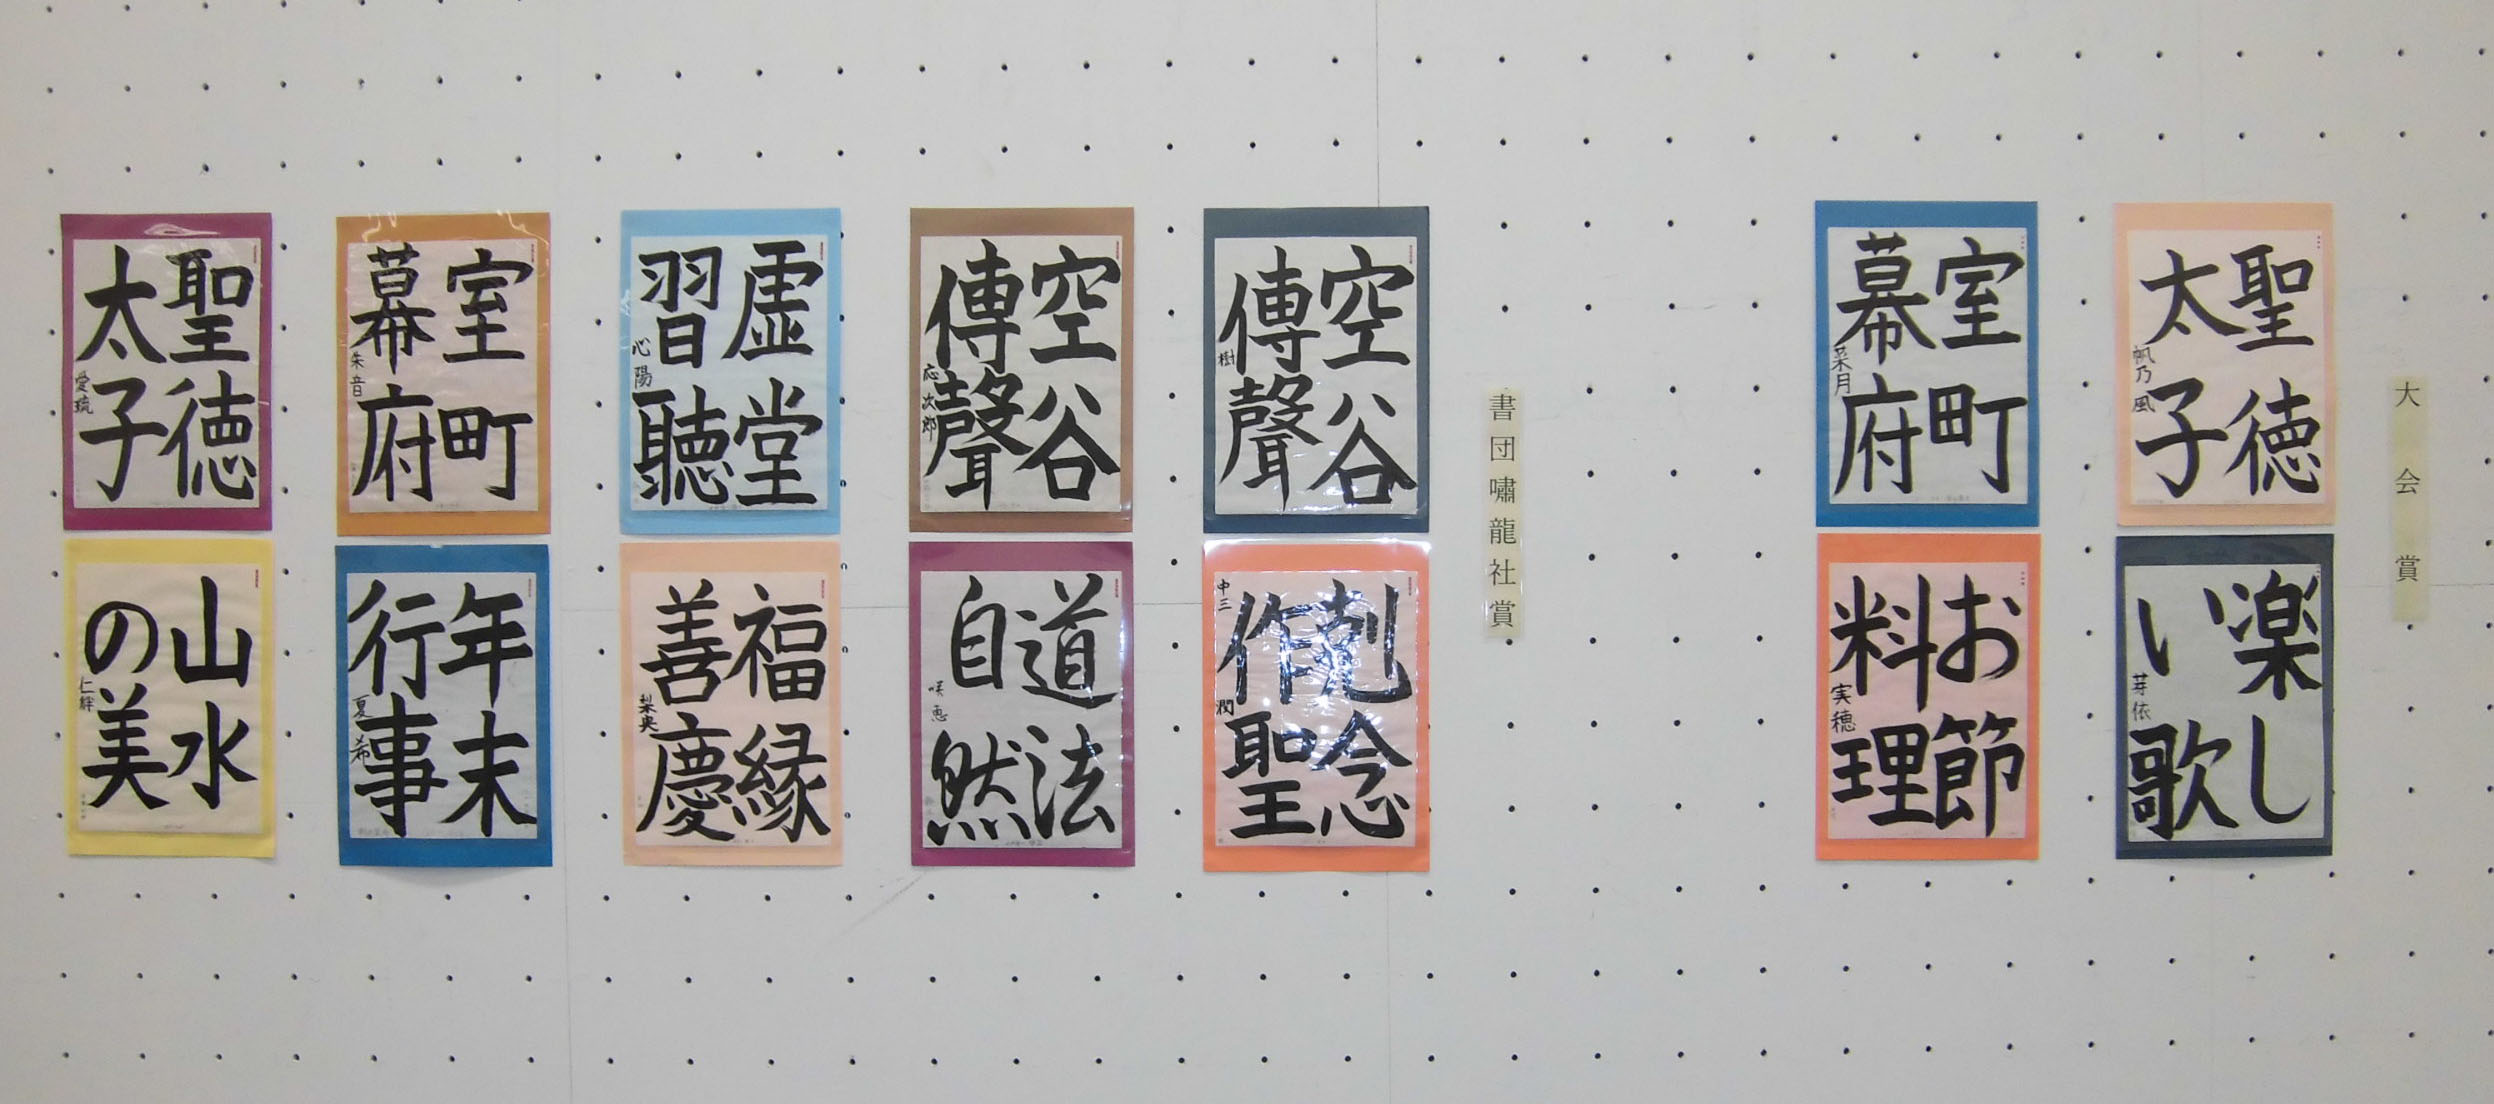 大会賞
聖徳
太子
帆乃風
楽し
い歌
芽依
室町
幕府
菜月
お節
料理
実穂
書団嘯龍社賞
空谷
傳聲
樹
剋念
作聖
中三
潤
空谷
傳聲
応次郎
道法
自然
咲恵
虚堂
習聽
心陽
福縁
善慶
梨央
室町
幕府
朱音
年末
行事
夏希
聖徳
太子
愛琉
山水
の美
仁絆